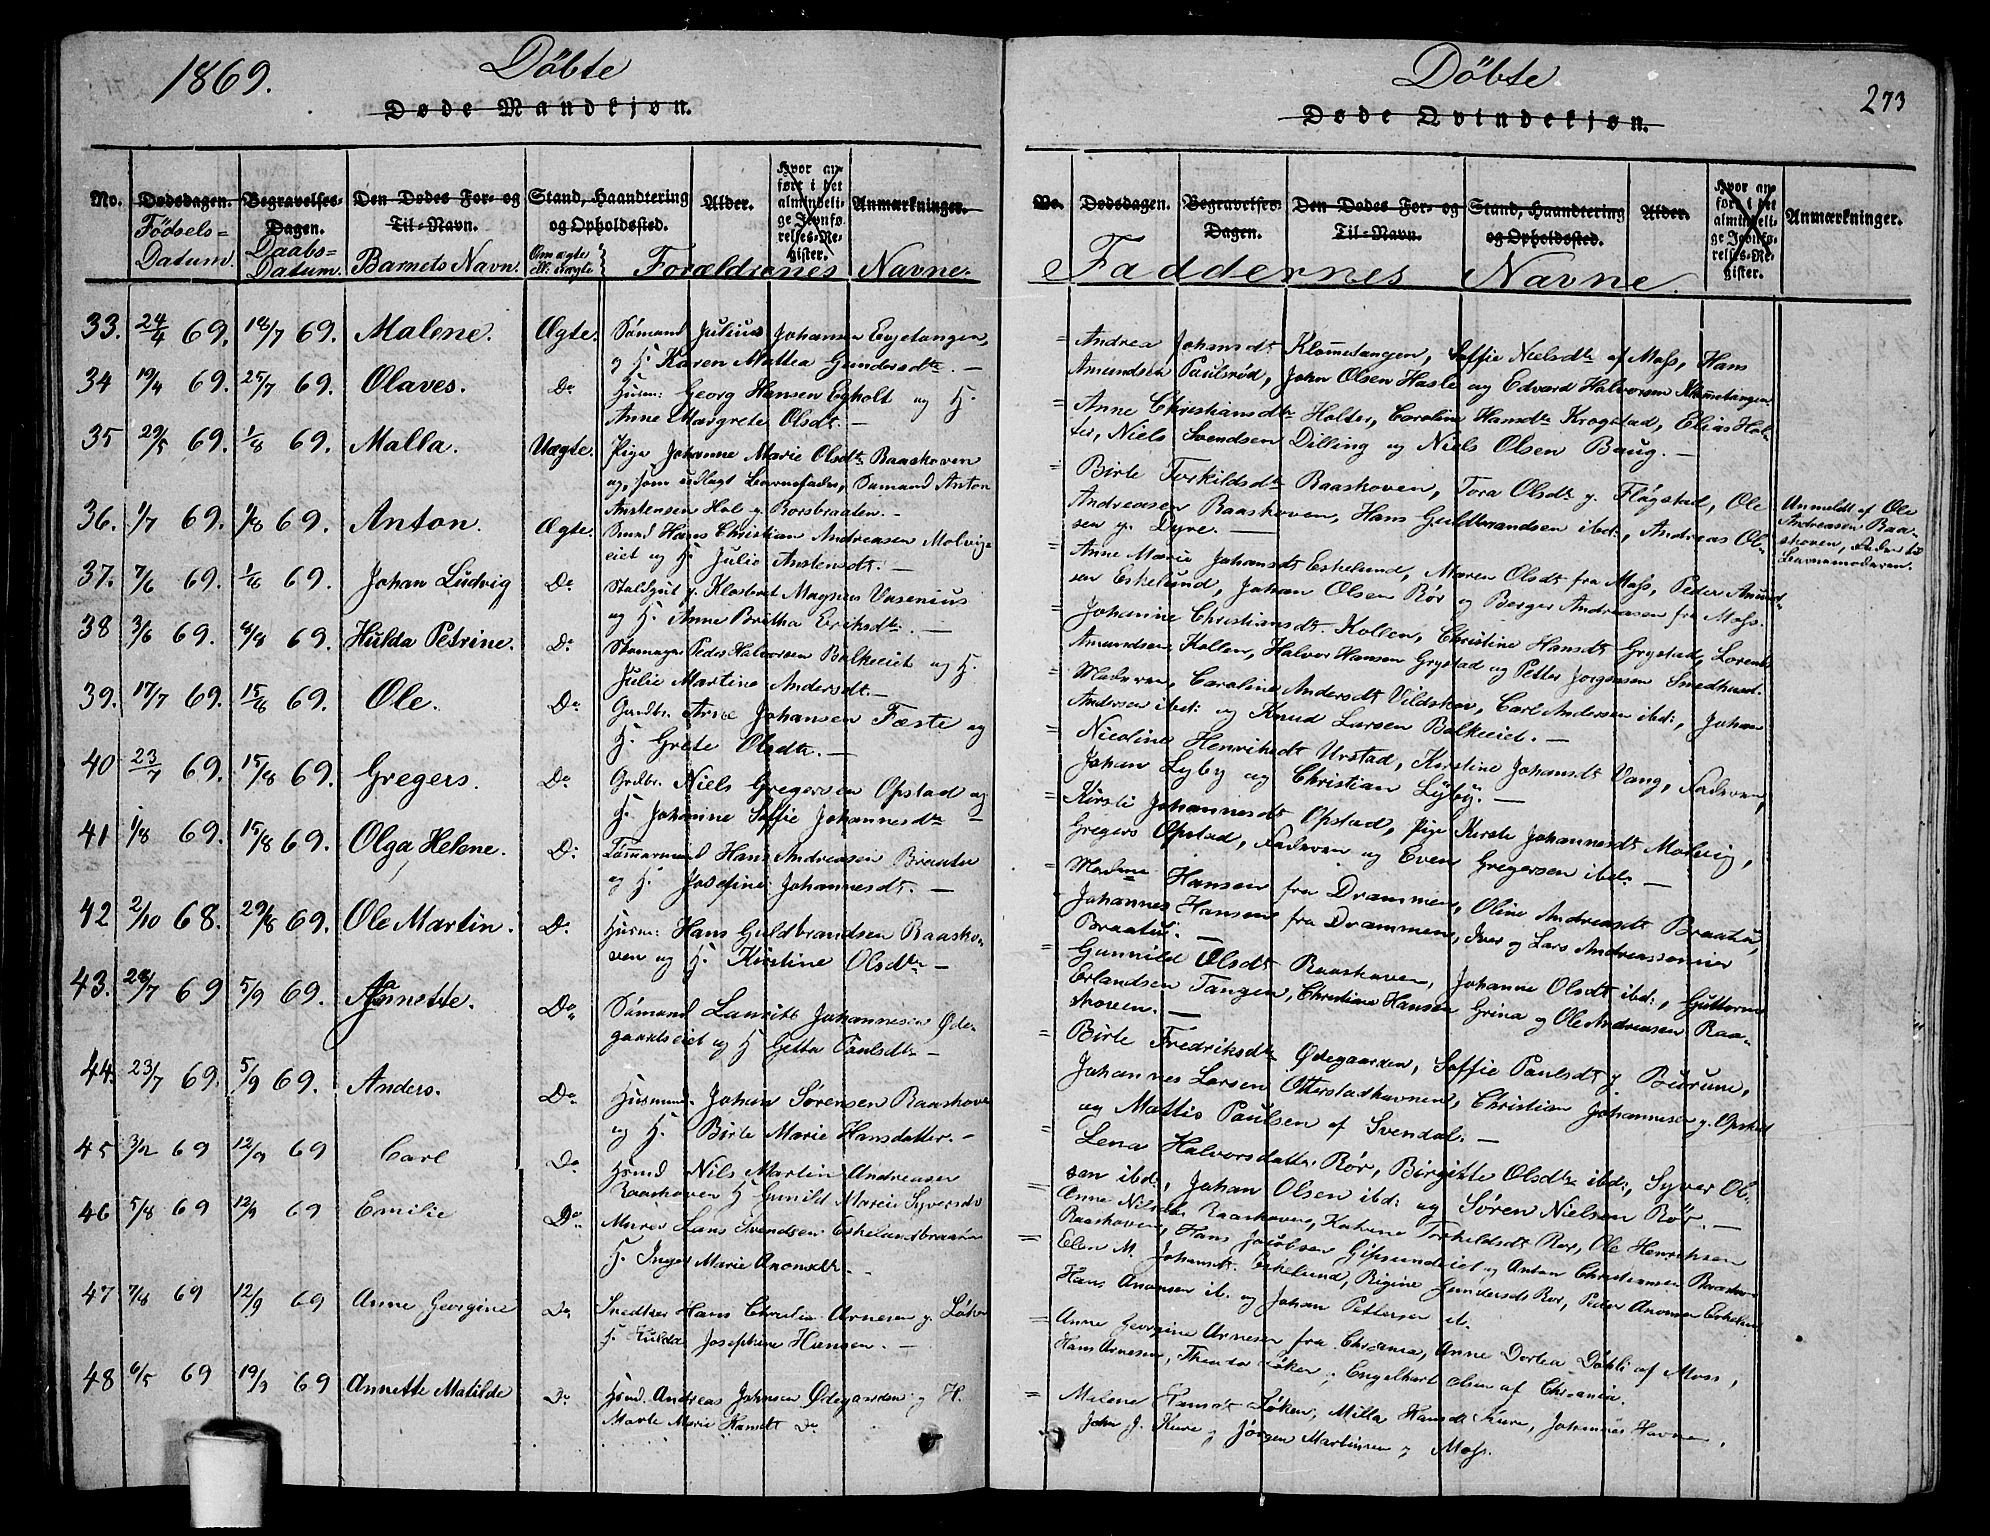 1869.
Döbte
Døde Mandkjøn.
No.
Dødsdagen.
Födsels-
Datum.
Begravelses-
Dagen.
Daabs-
Datum.
Den Dødes For- og
Til-Navn.
Barnets Navn.
Stand, Haandtering
og Opholdssted.
Om ægte
ell. uægte
Alder.
Hvor an-
ført i det
almindeli-
ge Jevnfø-
relses-Re-
gister.
Anmærkninger.
Forældrenes Navne.
33. 24/4 69. 18/7 69. Malene. Ægte. Sömand Julius Johansen Evjetangen,
og H. Karen Mattea Gundersdtr. —
34 19/4 69. 25/7 69. Olaves. Do Husm: Georg Hansen Egholt og H.
Anne Margrete Olsdt. —
35 29/5 69. 1/8 69. Malla. Uægte. Pige Johanne Marie Olsdtr Raaskoven
og, som udlagt Barnefader, Sømand Anton
Anstensen Hols g. Borsbraaten. —
36. 1/7 69. 1/8 69. Anton. Ægte. Smed Hans Christian Andreasen Molvig-
eiet og H. Julie Anstensdt. —
37. 7/6 69. 1/8 69. Johan Ludvig Do Staldgut g. Klosbret Magnus Vasenius
og H. Anne Britha Eriksdtr. —
38 3/6 69. 8/8 69. Hulda Petrine. Do Skomager Peder Halvorsen Bolkeeiet og H.
Julie Martine Andersdt. —
39. 17/7 69. 15/8 69. Ole. Do Gaardbr. Arne Johansen Fæste og
H. Grete Olsdtr. —
40 23/7 69. 15/8 69. Gregers. Do Grdbr. Niels Gregersen Opstad og
H. Johanne Soffie Johannesdtr —
41 1/8 69. 15/8 69. Olga Helene. Do Tømmermand Hans Andreasen Braaten
og H. Josefine Johannesdt. —
42 2/10 68. 29/8 69. Ole Martin. Do Husm: Hans Guldbrandsen Raasko-
ven og H. Kirstine Olsdtr —
43. 28/7 69 5/9 69. Annette. Do Sømand Lauritz Johannesen Øde-
gaardseiet og H Getta Paulsdtr —
44. 23/7 69. 5/9 69. Anders. Do Husmand Johan Sörensen Raaskoven
og H. Birte Marie Hansdatter. —
45 3/2 69 12/9 69 Carl Do Hsmd Nils Martin Andreasen
Raaskoven H Gunild Marie Syversdt
46 5/8 69 12/9 69 Emilie Do Murer Hans Svendsen Eskelundbraaten
H. Inger Marie —
47 7/8 69 12/9 69 Anne Georgine Do Snedker Hans Christian Arnesen g. Løken
H. Hulda Josephine Hansen. —
48 6/5 69 19/9 69 Annette Matilde Do Hsmd Andreas Johnsen Ødegaarden g H.
Marte Marie Hansdt Do
Döbte
273
Døde Qvindekjøn.
No.
Dødsdagen.
Begravelses-
Dagen.
Den Dødes For- og
Til-Navn.
Stand, Haandtering
og Opholdssted.
Alder.
Hvor an-
ført i det
almindeli-
ge Jevnfø-
relses-Re-
gister.
Anmærkninger.
Faddernes Navne.
= Andrea Johansdt Klommetangen, Soffie Nielsdtr af Moss, Hans
Amundsen Paulsrød, John Olsen Hasle og Edvard Halvorsen Klommetangen.
= Anne Christiansdtr Holter, Caroline Hansdtr Krogstad, Elias Hol-
ter, Niels Svendsen Dilling og Niels Olsen Baug. —
= Birte Torkildsdtr Raaskoven, Tora Olsdtr g. Flögstad, Ole
Andreasen Raaskoven, Hans Guldbrandsen ibd:, Andreas Ol-
sen g. Dyre. —
Anmeldt af Ole
Andreasen Raa-
skoven, Fader til
Barnemoderen.
= Anne Marie Johansdt Eskelund, Maren Olsdt fra Moss, Peder Amund-
sen Eskelund, Johan Olsen Rör og Berger Andreasen fra Moss.
= Johanne Christiansdt. Kollen, Christine Hansdt Grystad, Lorents
Amundsen Kollen, Halvor Hansen Grystad og Petter Jørgensen Smedhuset.
= Moderen, Caroline Andersdt Vildskov, Carl Andersen ibd:, Johan
Andersen ibd: og Knud Larsen Bolkeeiet. —
= Nicoline Henriksdt Urstad, Kirstine Johansdt Vang, Faderen,
Johan Lyby og Christian Lyby. —
= Kirsti Johannesdt Opstad, Pige Kirste Johannesdt Molvig,
Gregers Opstad, Faderen og Even Gregersen ibd: —
= Madme Hansen fra Drammen, Oline Andreasdt Braaten,
Johannes Hansen fra Drammen, Iver og Lars Andreassønner
Braaten. —
= Gunnild Olsdt Raaskoven, Johanne Olsdt ibd:, Guttorm
Erlandsen Tangen, Christian Hansen Grina og Ole Andreasen Raa-
skoven. —
= Birte Fredriksdtr Ødegaarden, Soffie Paulsdt g. Burum,
Johannes Larsen Otterstadhavnen, Christian Johannesen g. Opstad
og Mattis Paulsen af Svendal. —
= Lena Halvorsdatter Rör, Birgitte Olsdtr ibd:, Syver Ol-
sen ibd:, Johan Olsen ibd: og Sören Nielsen Rör. —
= Anne Nilsdt Raaskoven, Katrine Torkeldsdt Rör, Ole Henriksen
Raaskoven, Hans Jacobsen Gipsundeiet og Anton Christiansen Raaskov
= Elen M. Johansdt. Eskelund, Rigine Gundersdt Rör, Peder Eskelun
Hans ib. og Johan Pettersen ib.
= Anne Georgine Arnesen fra Chrania, Anne Dortea Döhli af Moss,
Hans Arnesen, Theodor Løken g Engelhart Olsen af Chrania.
= Malene Hansdt Løken, Milla Hansdt Kure, Johannes Havnen,
John J. Kure g Jörgen Martinsen g Moss.